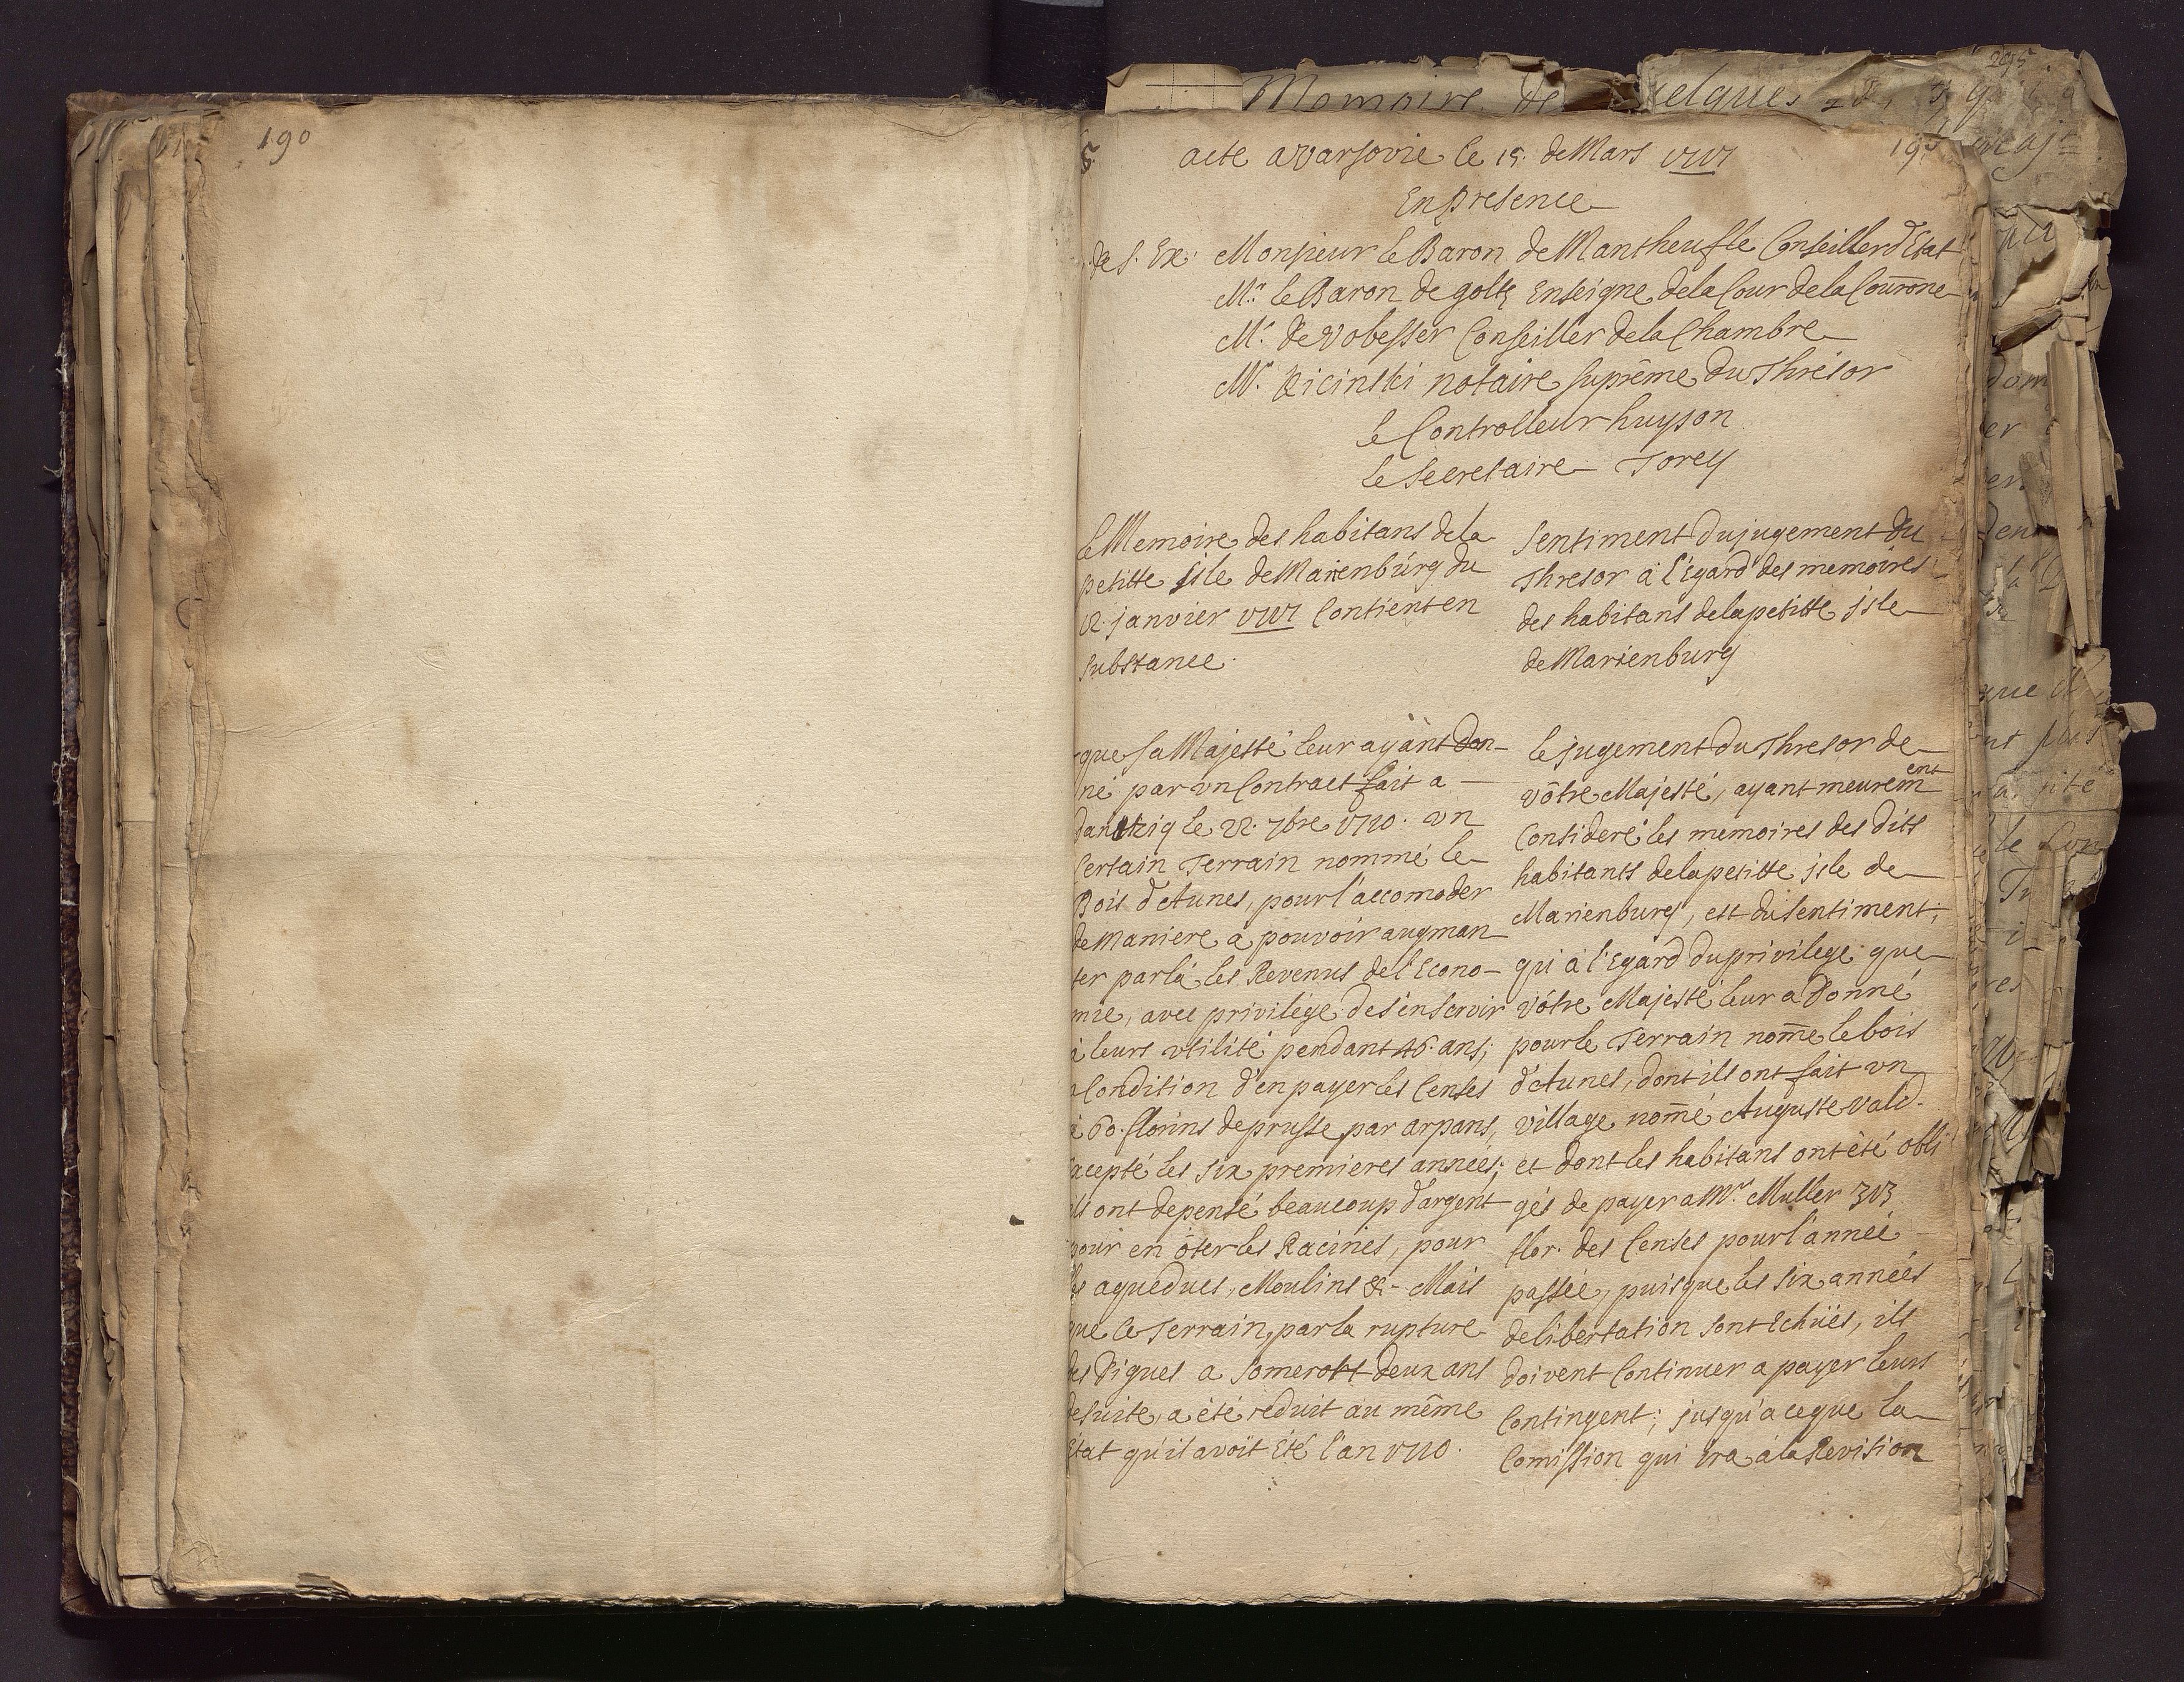 190
Memoire de quelques
295
S.
191
acte a Varsovie le 15. de Mars 1717
En presence
de S. Ex. Monsieur le Baron de Mantheufle Conseiller d'Etat
Mr. le Baron de goltz Enseigne de la Cour de la Couron̄e
Mr. de Vobesser Conseiller de la Chambre
Mr. Kicinski notaire suprême du Thrésor
le Controlleur huyson
le Secretaire Torey
le Memoire des habitans de la
petitte Isle de Marienbúrg du
12. janvier 1717 Contient en
substance.
que sa Majesté leur ayant don-
né par un Contract fait a
dantzig le 22. 7bre 1710. un
Certain Terrain nommé le
Bois d'Aunes, pour l'accomoder
de maniere a pouvoir augman
ter par là les Revenus de l'Econo-
mie, avec privilége de s'en servir
à leurs utilité pendant 46. ans;
a Condition d'en payer les Censes
à 60. florins de prusse par arpans,
Excepté les six premieres années;
ils ont depensé beaucoup d'argent
pour en ôter les Racines, pour
les aqueducs, Moulins &- Mais
que ce Terrain, par la rupture
des Digues a Somerort deux ans
de suite, a été reduit au même
Etat qu'il avoit Eté l'an 1710.
Sentiment du jugement du
Thresor à l'Egard des memoires
des habitans de la petitte jsle
de Marienburg
le jugement du Thresor de
vôtre Majesté, ayant meurement
Consideré les memoires des dits
habitants de la petitte jsle de
Marienburg, est du sentiment;
qu'à l'Egard du privilege que
Vôtre Majesté leur a Donné
pour le Terrain nom̄e le bois
d'Aunes, dont ils ont fait un
village nom̄é Auguste vald.
et dont les habitans ont été obli
gés de payer a Mr. Muller 313
flor. des Censes pour l'année
passée, puisque les six années
de libertation sont Echües, ils
doivent Continuer a payer leurs
Contingent; jusqu'a ce que la
Comission qui ira a la Revision